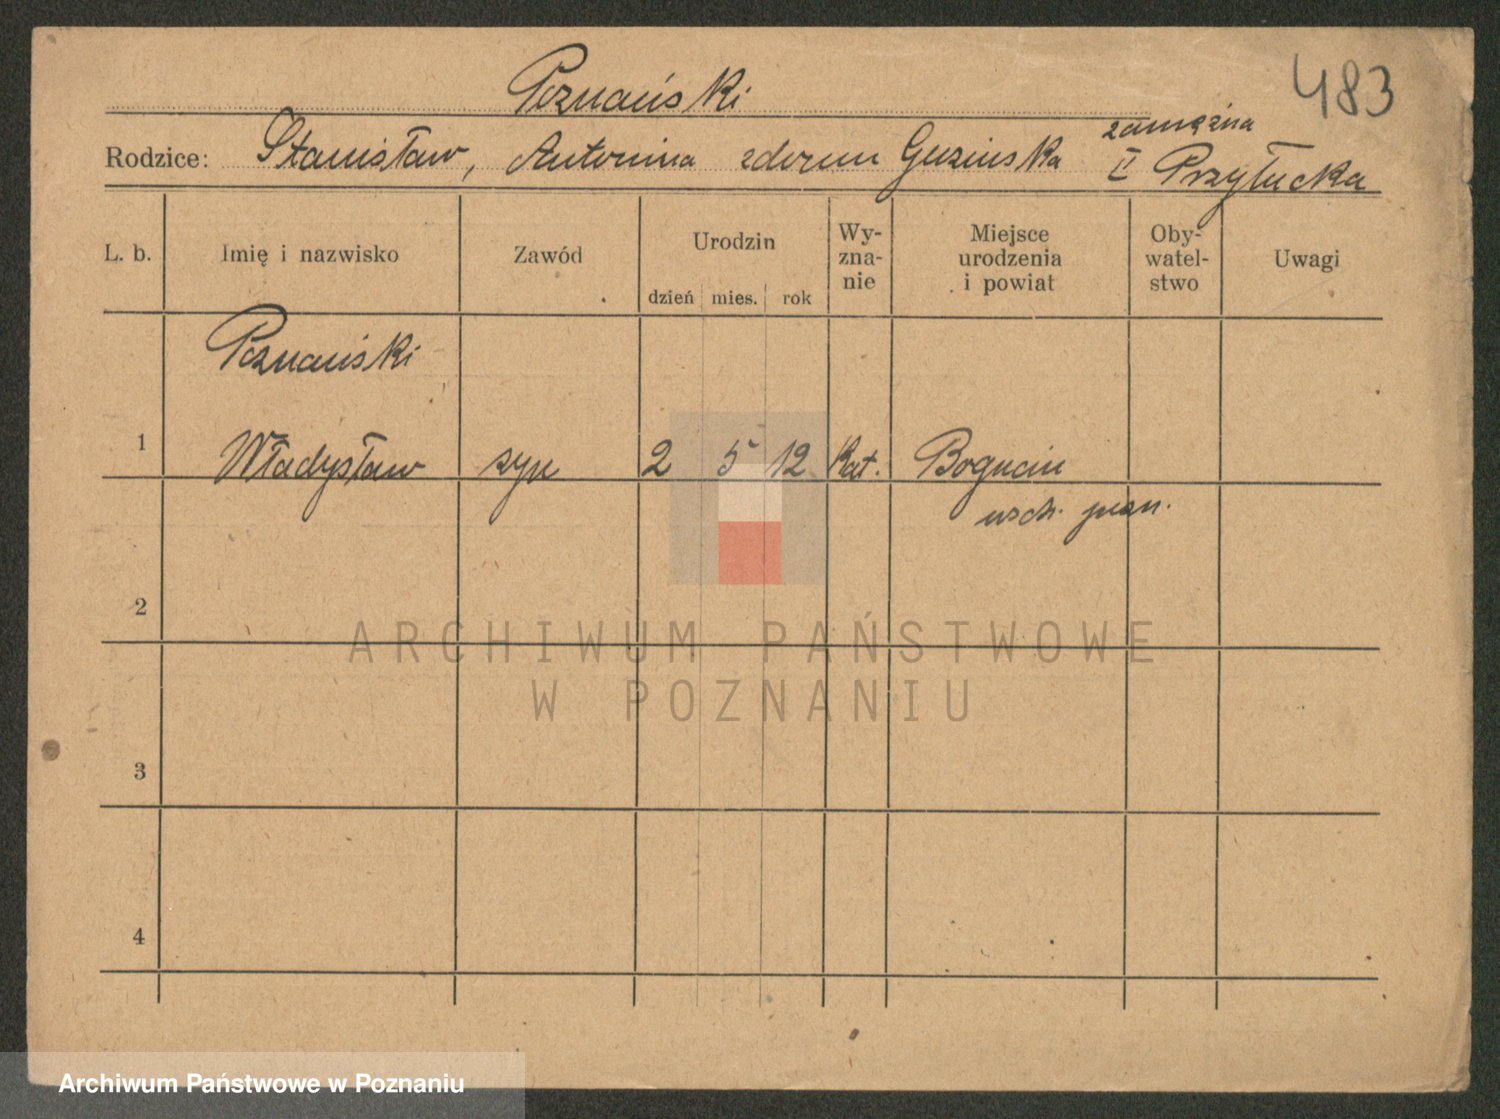 Poznański
483
Rodzice: Stanisław, Antonina zdomu Guzinska zamężna
II Przyłucka
L. b. Imię i nazwisko Zawód Urodzin dzień mies. rok Wy-zna-nie Miejsce urodzenia i powiat Oby-watel-stwo Uwagi
Poznański
1 Władysław syn 2 5 12 Kat. Bogucin
wsch. pozn.
2
ARCHIWUM PAŃSTWOWE
W POZNANIU
3
4
Archiwum Państwowe w Poznaniu